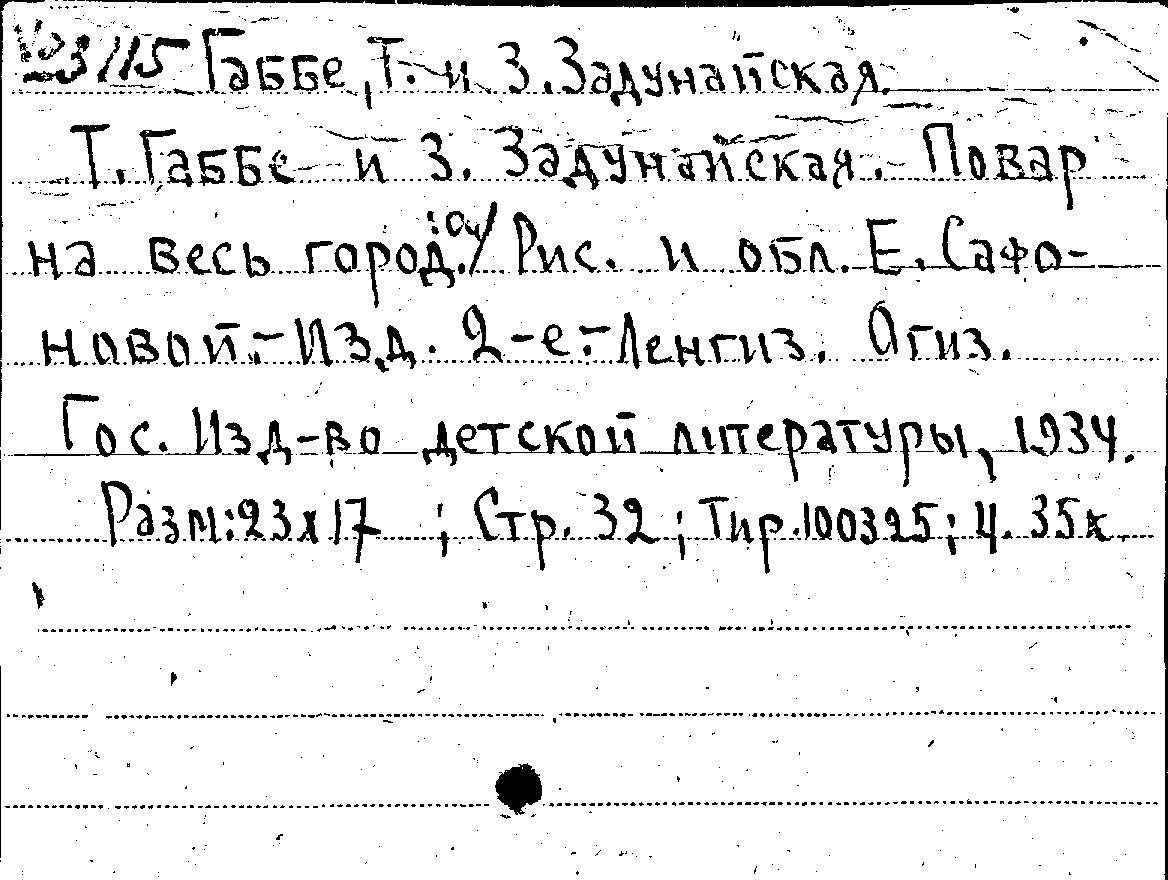 №3115 Габбе, Т. и З. Задунайская.
Т. Габбе и З. Задунайская. Повар
на весь город./ Рис. и обл. Е. Сафо-
новой.- Изд. 2-е.- Ленгиз. Огиз.
Гос. Изд-во детской литературы, 1934.
Разм: 23x17 ; Стр. 32 ; Тир. 100325 ; Ц. 35к.